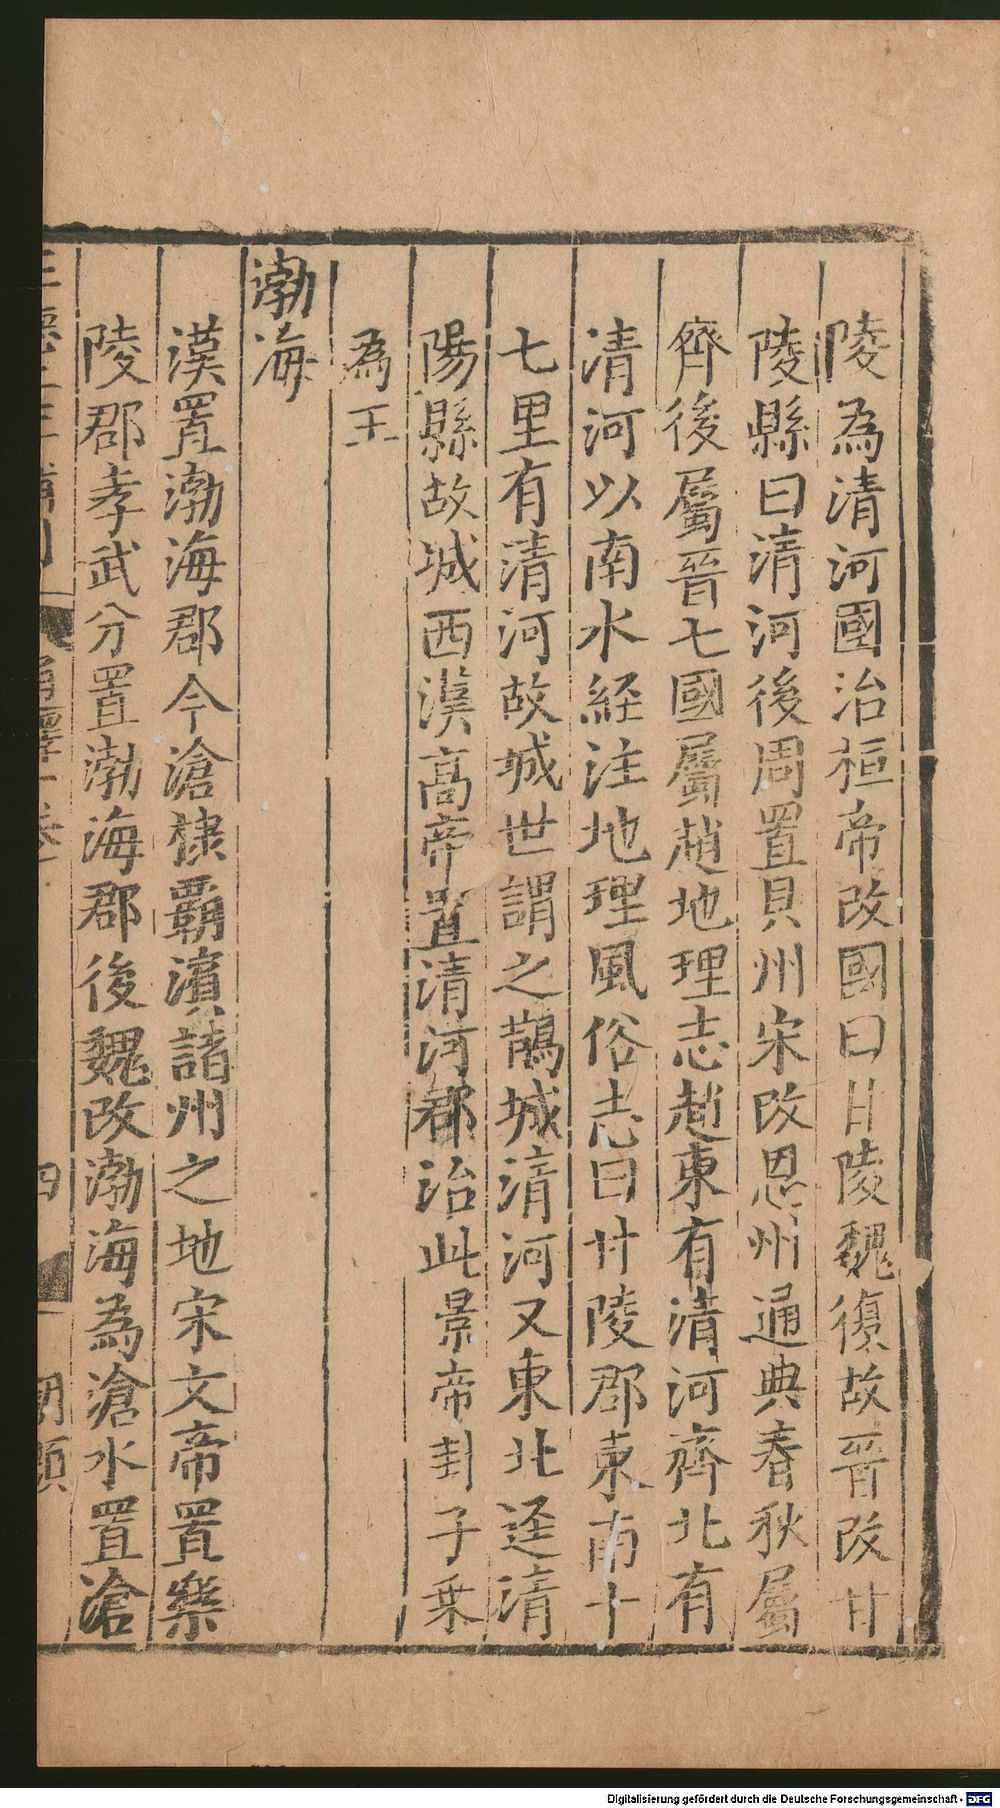 陵為清河國治桓帝改國曰甘陵魏復故晉改甘
陵縣曰清河後周置貝州宋改恩州通典春秋屬
齊後屬晉七國屬趙地理志趙東有清河齊北有
清河以南水經注地理風俗志曰甘陵郡東南十
七里有清河故城世謂之鵲城清河又東北逕清
陽縣故城西漢高帝置清河郡治此景帝封子乗
為王
渤海
漢置渤海郡今滄棣霸濱諸州之地宋文帝置樂
陵郡孝武分置渤海郡後魏改渤海為滄水置滄
四
Digitalisierung gefördert durch die Deutsche Forschungsgemeinschaft - DFG